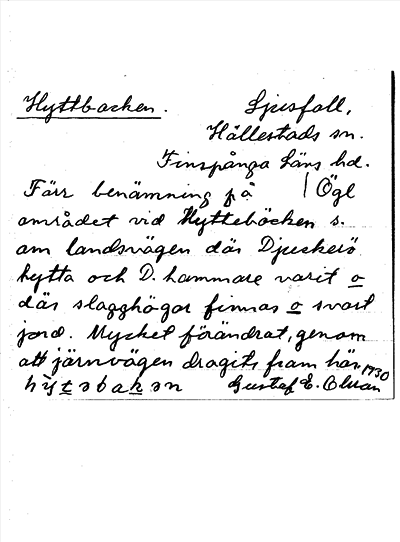 Hyttbacken. Ljusfall,
Hällestads sn.
Finspånga läns hd.
Förr benämning på | Ögl
området vid Hyttebäcken s.
om landsvägen där Djuckerö
hytta och D. hammare varit o
där slagghögar finnas o svart
jord. Mycket förändrat, genom
att järnvägen dragits fram här.
hỳtəbakən Gustaf E. Olsson 1930